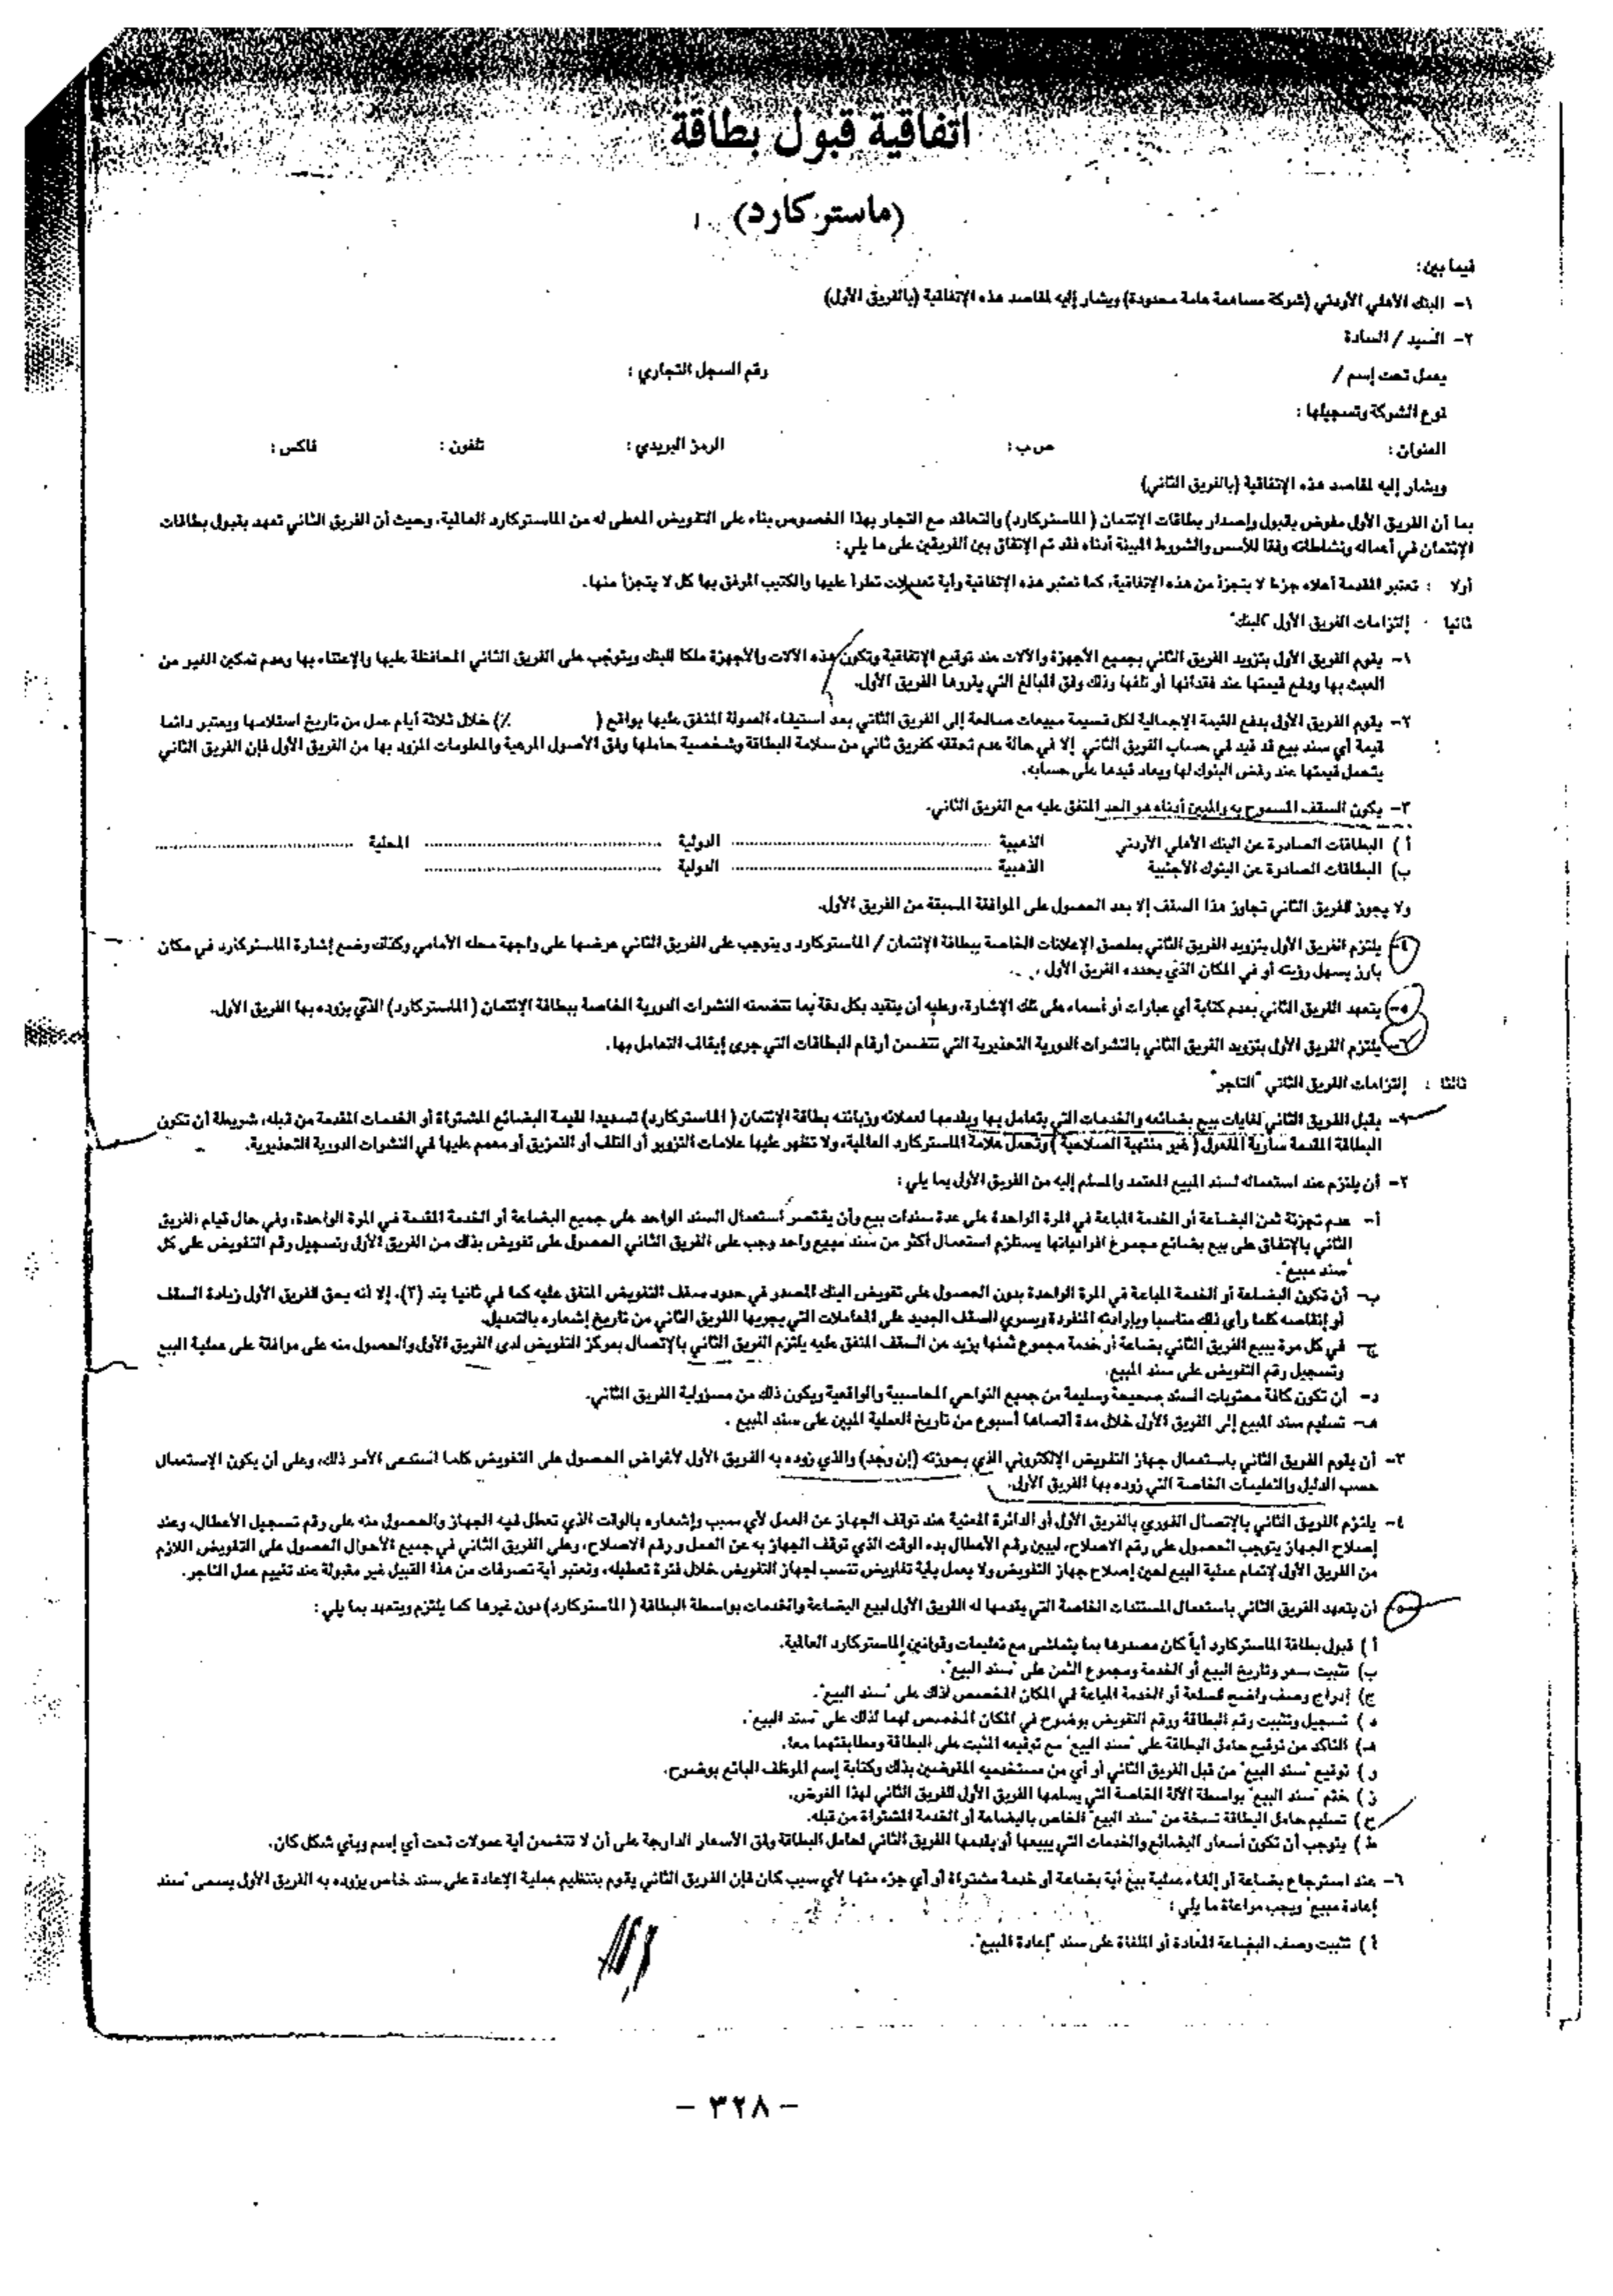 اتفاقية قبول بطاقة
(ماستر كارد)
فيما بين:
١- البنك الأهلي الأردني (شركة مساهمة عامة محدودة) ويشار إليه لمقاصد هذه الإتفاقية (بالفريق الأول)
٢- السيد / السادة
يعمل تحت إسم / رقم السجل التجاري :
نوع الشركة وتسجيلها :
العنوان : ص ب : الرمز البريدي : تلفون : فاكس :
ويشار إليه لمقاصد هذه الإتفاقية (بالفريق الثاني)
بما أن الفريق الأول مفوض بقبول وإصدار بطاقات الإئتمان (الماستركارد) والتعاقد مع التجار بهذا الخصوص بناء على التفويض المعطى له من الماستركارد العالمية، وحيث أن الفريق الثاني تعهد بقبول بطاقات
الإئتمان في أعماله ونشاطاته وفقا للأسس والشروط المبينة أدناه فقد تم الإتفاق بين الفريقين على ما يلي :
أولا : تعتبر المقدمة أعلاه جزءا لا يتجزأ من هذه الإتفاقية، كما تعتبر هذه الإتفاقية وأية تعديلات تطرأ عليها والكتيب المرفق بها كل لا يتجزأ منها.
ثانيا : إلتزامات الفريق الأول "البنك"
١- يقوم الفريق الأول بتزويد الفريق الثاني بجميع الأجهزة والآلات عند توقيع الإتفاقية وتكون هذه الآلات والأجهزة ملكا للبنك ويتوجب على الفريق الثاني المحافظة عليها والإعتناء بها وعدم تمكين الغير من
العبث بها ودفع قيمتها عند فقدانها أو تلفها وذلك وفق المبالغ التي يقررها الفريق الأول.
٢- يقوم الفريق الأول بدفع القيمة الإجمالية لكل قسيمة مبيعات صالحة إلى الفريق الثاني بعد استيفاء العمولة المتفق عليها بواقع ( ٪) خلال ثلاثة أيام عمل من تاريخ استلامها ويعتبر دائما
قيمة أي سند بيع قد قيد في حساب الفريق الثاني إلا في حالة عدم تحققه كفريق ثاني من سلامة البطاقة وشخصية حاملها وفق الأصول المرعية والمعلومات المزود بها من الفريق الأول فإن الفريق الثاني
يتحمل قيمتها عند رفض البنوك لها ويعاد قيدها على حسابه.
٣- يكون السقف المسموح به والمبين أدناه هو الحد المتفق عليه مع الفريق الثاني.
أ ) البطاقات الصادرة عن البنك الأهلي الأردني الذهبية .......... الدولية .......... المحلية ..........
ب) البطاقات الصادرة عن البنوك الأجنبية الذهبية .......... الدولية ..........
ولا يجوز للفريق الثاني تجاوز هذا السقف إلا بعد الحصول على الموافقة المسبقة من الفريق الأول.
٤- يلتزم الفريق الأول بتزويد الفريق الثاني بملصق الإعلانات الخاصة ببطاقة الإئتمان / الماستركارد ويتوجب على الفريق الثاني عرضها على واجهة محله الأمامي وكذلك وضع إشارة الماستركارد في مكان
بارز يسهل رؤيته أو في المكان الذي يحدده الفريق الأول .
٥- يتعهد الفريق الثاني بعدم كتابة أي عبارات أو أسماء على تلك الإشارة، وعليه أن يتقيد بكل دقة بما تتضمنه النشرات الدورية الخاصة ببطاقة الإئتمان (الماستركارد) الذي يزوده بها الفريق الأول.
٦- يلتزم الفريق الأول بتزويد الفريق الثاني بالنشرات الدورية التحذيرية التي تتضمن أرقام البطاقات التي جرى إيقاف التعامل بها.
ثالثا : إلتزامات الفريق الثاني "التاجر"
١- يقبل الفريق الثاني لغايات بيع بضائعه والخدمات التي يتعامل بها ويقدمها لعملائه وزبائنه بطاقة الإئتمان (الماستركارد) تسديدا لقيمة البضائع المشتراة أو الخدمات المقدمة من قبله، شريطة أن تكون
البطاقة المقدمة سارية المفعول (غير منتهية الصلاحية) وتحمل علامة الماستركارد العالمية، ولا تظهر عليها علامات التزوير أو التلف أو التمزيق أو معمم عليها في النشرات الدورية التحذيرية.
٢- أن يلتزم عند استعماله لسند المبيع المعتمد والمسلم إليه من الفريق الأول بما يلي :
أ- عدم تجزئة ثمن البضاعة أو الخدمة المباعة في المرة الواحدة على عدة سندات بيع وأن يقتصر استعمال السند الواحد على جميع البضاعة أو الخدمة المقدمة في المرة الواحدة، وفي حال قيام الفريق
الثاني بالإتفاق على بيع بضائع مجموع افرادياتها يستلزم استعمال أكثر من سند مبيع واحد وجب على الفريق الثاني الحصول على تفويض بذلك من الفريق الأول وتسجيل رقم التفويض على كل
"سند مبيع".
ب- أن تكون البضاعة أو الخدمة المباعة في المرة الواحدة بدون الحصول على تفويض البنك المصدر في حدود سقف التفويض المتفق عليه كما في ثانيا بند (٣)، إلا أنه يحق للفريق الأول زيادة السقف
أو إنقاصه كلما رأى ذلك مناسبا وبإرادته المنفردة ويسري السقف الجديد على المعاملات التي يجريها الفريق الثاني من تاريخ إشعاره بالتعديل.
ج- في كل مرة يبيع الفريق الثاني بضاعة أو خدمة مجموع ثمنها يزيد عن السقف المتفق عليه يلتزم الفريق الثاني بالإتصال بمركز التفويض لدى الفريق الأول والحصول منه على موافقة على عملية البيع
وتسجيل رقم التفويض على سند المبيع.
د- أن تكون كافة محتويات السند صحيحة وسليمة من جميع النواحي المحاسبية والواقعية ويكون ذلك من مسؤولية الفريق الثاني.
هـ- تسليم سند المبيع إلى الفريق الأول خلال مدة أقصاها أسبوع من تاريخ العملية المبين على سند المبيع .
٣- أن يقوم الفريق الثاني باستعمال جهاز التفويض الإلكتروني الذي بحوزته (إن وجد) والذي زوده به الفريق الأول لأغراض الحصول على التفويض كلما استدعى الأمر ذلك، وعلى أن يكون الإستعمال
حسب الدليل والتعليمات الخاصة التي زوده بها الفريق الأول.
٤- يلتزم الفريق الثاني بالإتصال الفوري بالفريق الأول أو الدائرة المعنية عند توقف الجهاز عن العمل لأي سبب وإشعاره بالوقت الذي تعطل فيه الجهاز والحصول منه على رقم تسجيل الأعطال، وعند
إصلاح الجهاز يتوجب الحصول على رقم الاصلاح، ليبين رقم الأعطال بدء الوقت الذي توقف الجهاز به عن العمل ورقم الاصلاح، وعلى الفريق الثاني في جميع الأحوال الحصول على التفويض اللازم
من الفريق الأول لإتمام عملية البيع لحين إصلاح جهاز التفويض ولا يعمل بأية تفاويض تنسب لجهاز التفويض خلال فترة تعطيله، وتعتبر أية تصرفات من هذا القبيل غير مقبولة عند تقييم عمل التاجر.
٥- أن يتعهد الفريق الثاني باستعمال المستندات الخاصة التي يقدمها له الفريق الأول لبيع البضاعة والخدمات بواسطة البطاقة (الماستركارد) دون غيرها كما يلتزم ويتعهد بما يلي :
أ ) قبول بطاقة الماستركارد أياً كان مصدرها بما يتماشى مع تعليمات وقوانين الماستركارد العالمية.
ب) تثبيت سعر وتاريخ البيع أو الخدمة ومجموع الثمن على "سند البيع".
ج) إدراج وصف واضح للسلعة أو الخدمة المباعة في المكان المخصص لذلك على "سند البيع".
د ) تسجيل وتثبيت رقم البطاقة ورقم التفويض بوضوح في المكان المخصص لهما لذلك على "سند البيع".
هـ) التأكد من توقيع حامل البطاقة على "سند البيع" مع توقيعه المثبت على البطاقة ومطابقتهما معا.
و ) توقيع "سند البيع" من قبل الفريق الثاني أو أي من مستخدميه المفوضين بذلك وكتابة إسم الموظف البائع بوضوح.
ز ) ختم "سند البيع" بواسطة الآلة الخاصة التي يسلمها الفريق الأول للفريق الثاني لهذا الغرض.
ح ) تسليم حامل البطاقة نسخة من "سند البيع" الخاص بالبضاعة أو الخدمة المشتراة من قبله.
ط ) يتوجب أن تكون أسعار البضائع والخدمات التي يبيعها أو يقدمها الفريق الثاني لحامل البطاقة وفق الأسعار الدارجة على أن لا تتضمن أية عمولات تحت أي إسم وبأي شكل كان.
٦- عند استرجاع بضاعة أو إلغاء عملية بيع أية بضاعة أو خدمة مشتراة أو أي جزء منها لأي سبب كان فإن الفريق الثاني يقوم بتنظيم عملية الإعادة على سند خاص يزوده به الفريق الأول يسمى "سند
إعادة مبيع" ويجب مراعاة ما يلي :
أ ) تثبيت وصف البضاعة المعادة أو الملغاة على سند "إعادة المبيع".
- ٣٢٨ -